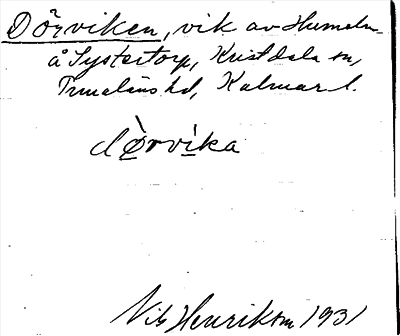 Dörviken, vik av Humeln-
å Systertorp, Kristdala sn,
Tunaläns hd, Kalmar l.
dò̤rvì̤ka
Nils Henrikson 1931